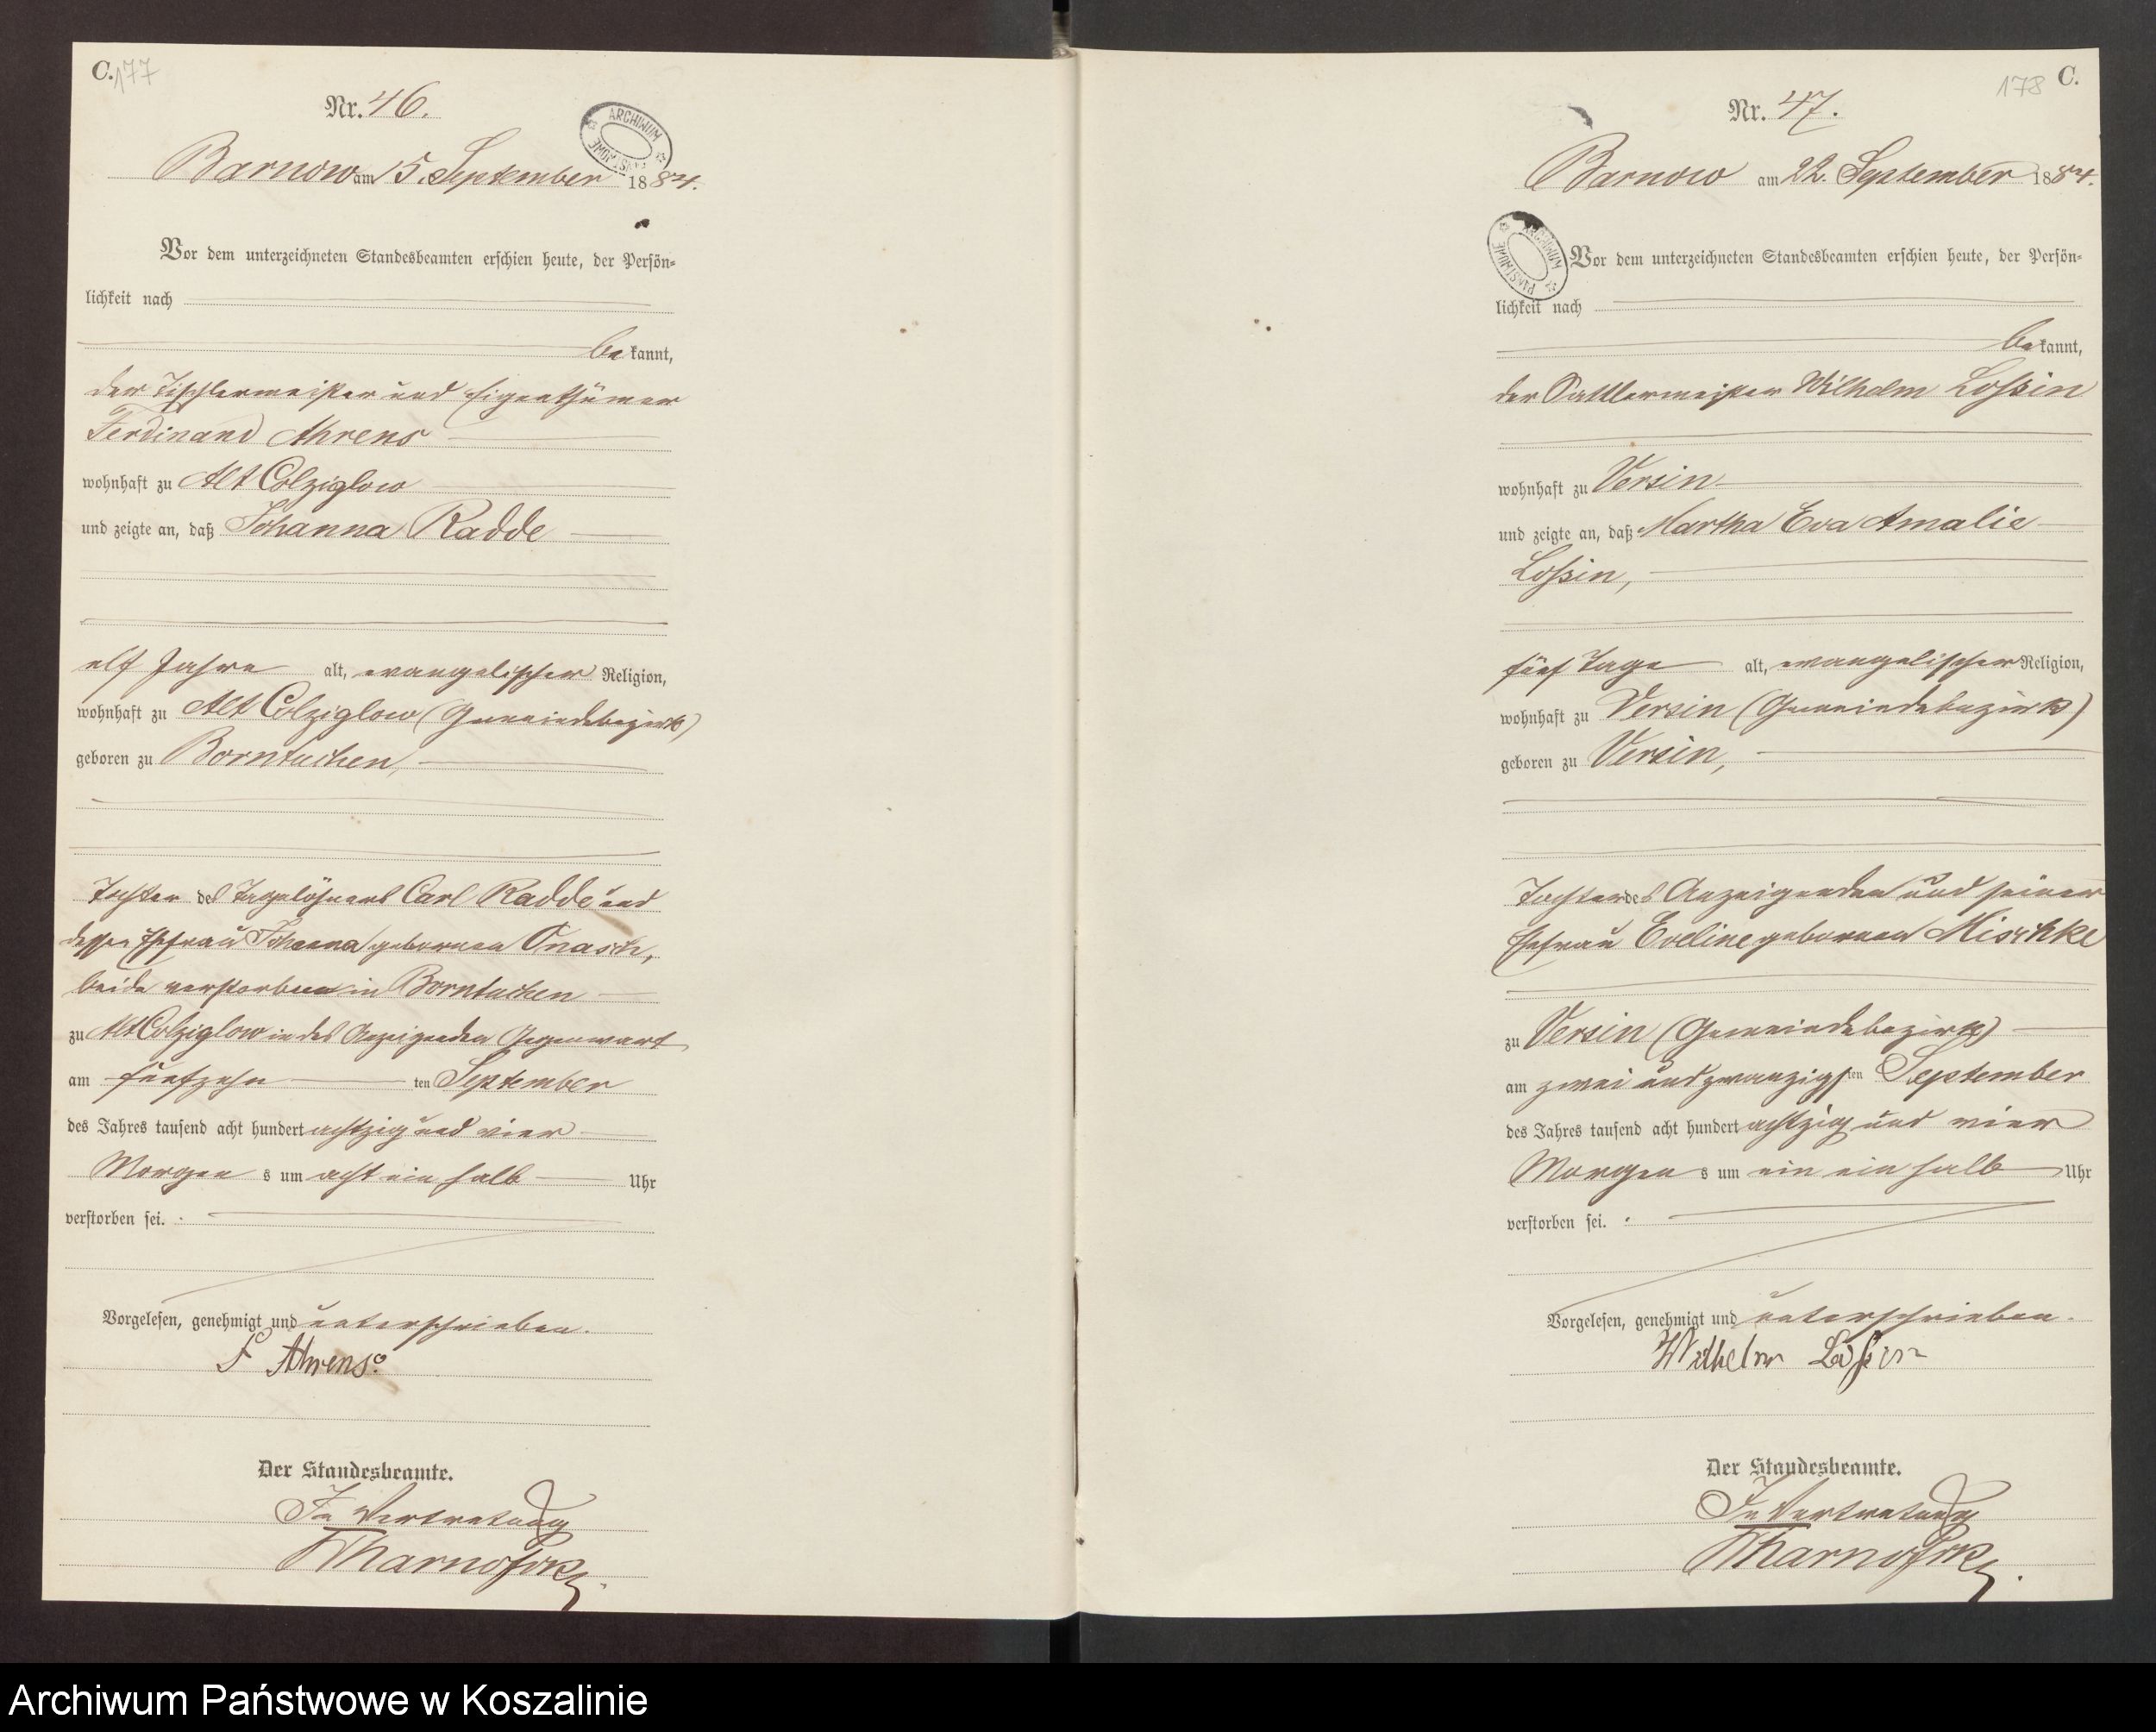 C. 177
Nr. 46.
ARCHIWUM PAŃSTWOWE
Barnow am 15. September 1884.
Vor dem unterzeichneten Standesbeamten erschien heute, der Persön-
lichkeit nach
bekannt,
der Tischlermeister und Eigenthümer
Ferdinand Ahrens
wohnhaft zu Alt Colziglow
und zeigte an, daß Johanna Radde
elf Jahre alt, evangelischer Religion,
wohnhaft zu Alt Colziglow (Gemeindebezirk)
geboren zu Borntuchen,
Tochter des Tagelöhners Carl Radde und
dessen Ehefrau Johanna geborenen Onasch,
beide verstorben in Borntuchen
zu Alt Colziglow in des Anzeigenden Gegenwart
am fünfzehn ten September
des Jahres tausend acht hundert achtzig und vier
Morgen s um acht ein halb Uhr
verstorben sei.
Vorgelesen, genehmigt und unterschrieben.
F Ahrens.
Der Standesbeamte.
In Vertretung
178 C.
Nr. 47.
Barnow am 22. September 1884.
ARCHIWUM PAŃSTWOWE
Vor dem unterzeichneten Standesbeamten erschien heute, der Persön-
lichkeit nach
bekannt,
der Sattlermeister Wilhelm Loßin
wohnhaft zu Versin
und zeigte an, daß Martha Eva Amalie
Loßin,
fünf Tage alt, evangelischer Religion,
wohnhaft zu Versin (Gemeindebezirk)
geboren zu Versin,
Tochter des Anzeigenden und seiner
Ehefrau Eveline geborenen Mischke
zu Versin (Gemeindebezirk)
am zwei und zwanzigsten September
des Jahres tausend acht hundert achtzig und vier
Morgen s um ein ein halb Uhr
verstorben sei.
Vorgelesen, genehmigt und unterschrieben.
Wilhelm Loßin
Der Standesbeamte.
In Vertretung
Archiwum Państwowe w Koszalinie